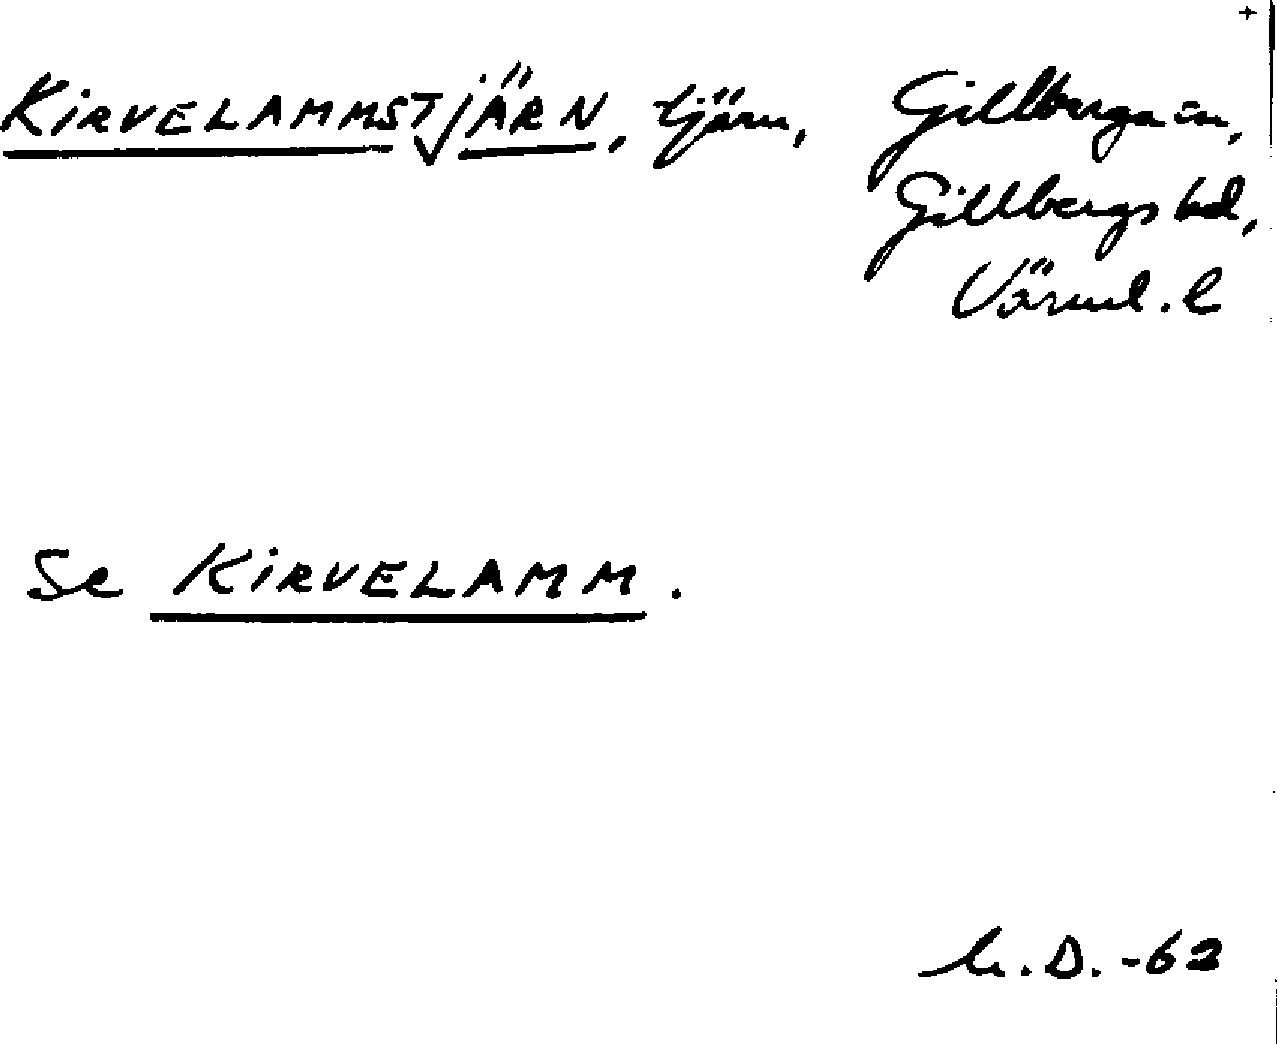 KIRVELAMMSTJÄRN, tjärn, Gillberga sn,
Gillbergs hd,
Värml. l
Se KIRVELAMM.
D. -62